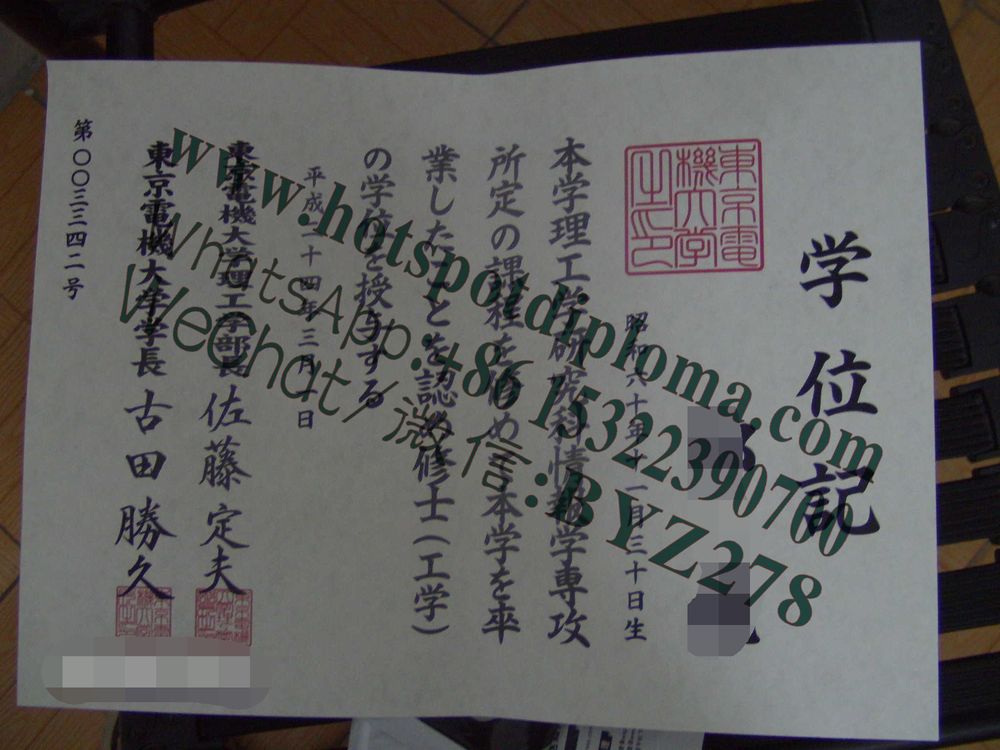 学位記
東京電
機大学
之印
昭和六十年十一月三十日生
本学理工学研究科情報学専攻
所定の課程を修め本学を卒
業したことを認め修士(工学)
の学位を授与する
平成二十四年三月日
東京電機大学理工学部長 佐藤定夫
東京電機大学学長 古田勝久
第〇〇三三四二号
www.hotspotdiploma.com
WhatsApp:+86 15322390700
Wechat/微信:BYZ278